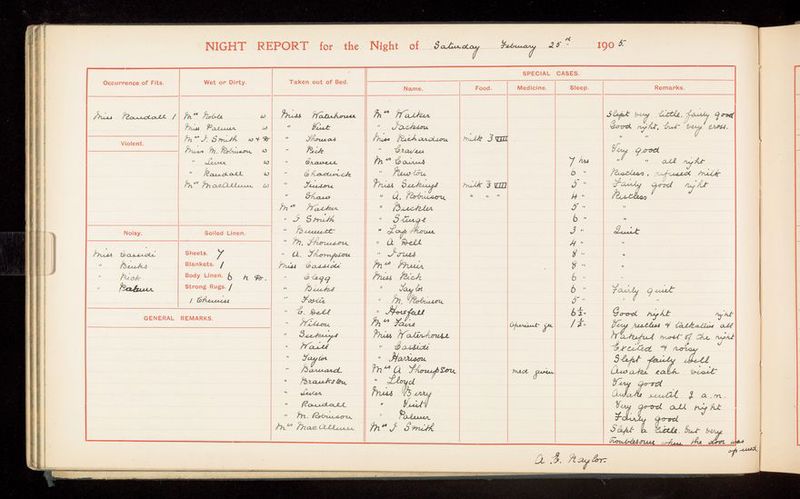 NIGHT REPORT for the Night of Saturday February 25th 1905
Occurrence of Fits.
Miss Randall 1
Violent.
Noisy.
Miss Cassidi
" Binks
" Rich
" Palmer
Wet or Dirty.
Mrs Noble w
Miss Palmer w
Mrs J. Smith w +
Miss M. Robinson w
" Lever w
" Randall w
Mrs MacAllum w
Soiled Linen.
Sheets. 7
Blankets. 1
Body Linen. 6
Strong Rugs. 1
1 Chemise
GENERAL REMARKS.
Taken out of Bed.
Miss Waterhouse
"
" Thomas
" Rich
" Graves
" Chadwick
"
" Shaw
Mrs Walker
" J Smith
" Bennett
" M. Thomson
" A. Thompson
Miss Cassidi
" Clegg
" Binks
"
" E. Bell
" Wilson
"
"
" Taylor
" Barnard
"
" Lever
" Randall
" M. Robinson
Mrs MacAllum
SPECIAL CASES.
Name. Food. Medicine. Sleep. Remarks.
Mrs Walker Slept very little. fairly good
" Jackson Good night, but very cross.
Miss Richardson milk ℥ VIII " "
" Graves Very good
Mrs Cairns 7 hrs " " all night
" Newton 6 " Restless, refused milk
Miss milk ℥ VIII 5 " Fairly good night
" A. Robinson " " " 4 " Restless
" Buckley 5 " "
" Sturge 6 " "
" 3 " Quiet
" A Bell 4 " "
" Jones 8 " "
Mrs Muir 8 " "
Miss Rich 6 " "
" Taylor 6 " Fairly quiet
" M. Robinson 5 " "
" Horsfall 6½ " Good night
Mrs 1½ " Very restless & talkative all night
Miss Waterhouse Wakeful most of the night
" Cassidi Excited & noisy
" Harrison Slept fairly well
Mrs A Thompson med given Awake each visit
" Lloyd Very good
Miss Berry Awake until 2 a.m.
" Very good all night
" Palmer Fairly good
Mrs J Smith Slept a little. but very
troublesome when the door was
opened
A. E. Naylor.